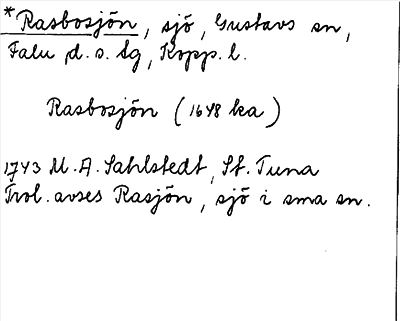 *Rasbosjön, sjö, Gustavs sn,
Falu d. s. tg, Kopp. l.
Rasbosjön (1648 ka)
1743 M. A. Sahlstedt, St. Tuna
Trol. avses Rasjön, sjö i sma sn.